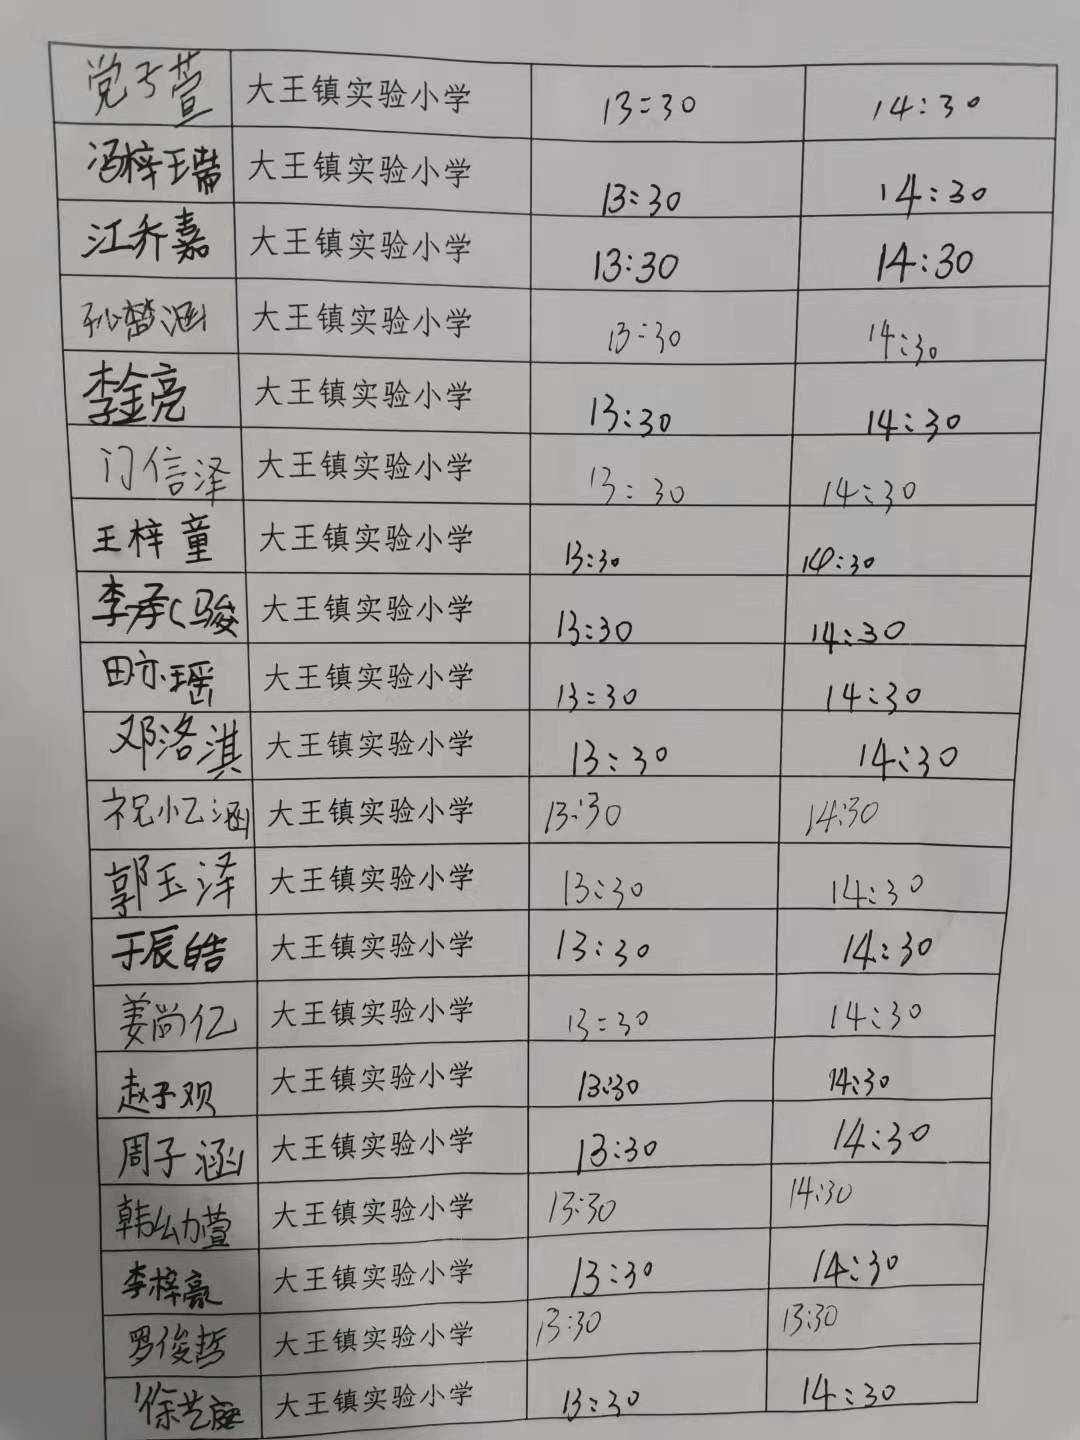 党于萱 大王镇实验小学 13:30 14:30
冯梓瑞 大王镇实验小学 13:30 14:30
江乔嘉 大王镇实验小学 13:30 14:30
孙楚涵 大王镇实验小学 13:30 14:30
李金亮 大王镇实验小学 13:30 14:30
门信泽 大王镇实验小学 13:30 14:30
王梓童 大王镇实验小学 13:30 14:30
李承骏 大王镇实验小学 13:30 14:30
田亦瑶 大王镇实验小学 13:30 14:30
邓洛淇 大王镇实验小学 13:30 14:30
祝忆涵 大王镇实验小学 13:30 14:30
郭玉泽 大王镇实验小学 13:30 14:30
于辰皓 大王镇实验小学 13:30 14:30
姜尚亿 大王镇实验小学 13:30 14:30
赵子观 大王镇实验小学 13:30 14:30
周子涵 大王镇实验小学 13:30 14:30
韩幼萱 大王镇实验小学 13:30 14:30
李梓豪 大王镇实验小学 13:30 14:30
罗俊哲 大王镇实验小学 13:30 13:30
徐艺 大王镇实验小学 13:30 14:30